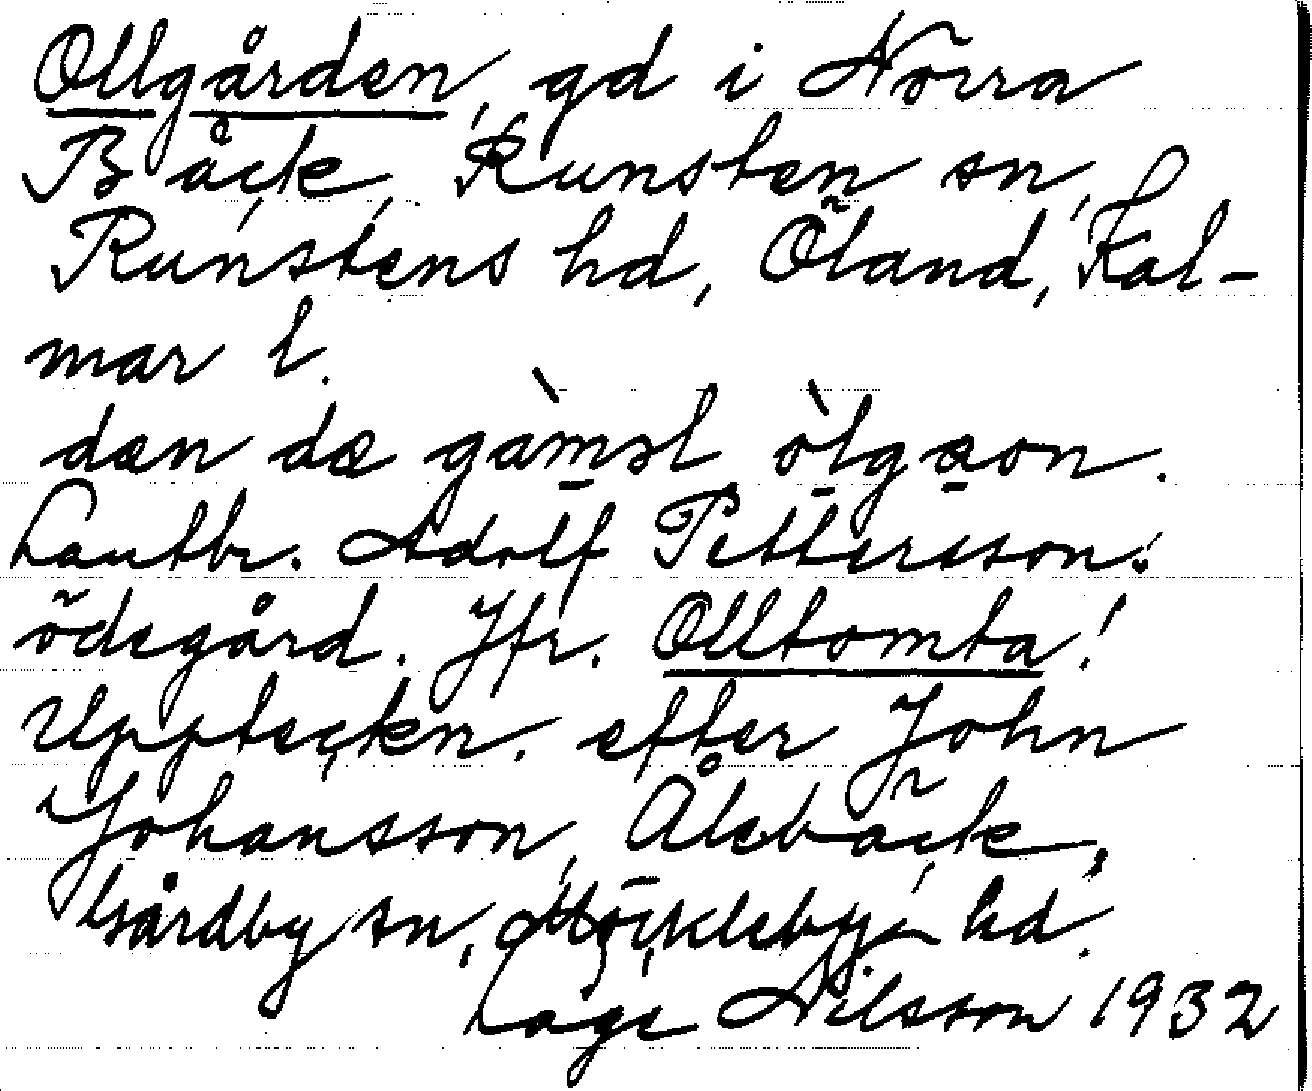 Ollgården, gd i Norra
Bäck, Runsten sn,
Runstens hd, Öland, Kal-
mar l.
dæn dæ gàmsl òlgæon.
Lantbr. Adolf Pettersson.
ödegård. Jfr. Olltomta!
Uppteckn. efter John
Johansson, Ålebäck,
Gårdby sn, Möckleby hd.
Låge Nilsson 1932